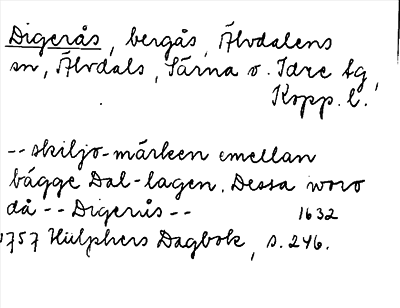 Digerås, bergås, Älvdalens
sn, Älvdals, Särna o. Idre tg,
Kopp. l.
-- skiljo-märken emellan
bägge Dal-lagen. Dessa woro
då -- Digerås -- 1632
1757 Hülphers Dagbok, s. 246.